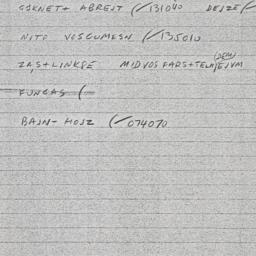 GORNET+ ABREJT (/131040 DEJZE/
NITO VOSGUMESN (/135010
ZA,S+LINKPE MIDVOS FARS+TELM(DEM)EJVM
FUNGAS (
BAJN- HOJZ (/074070